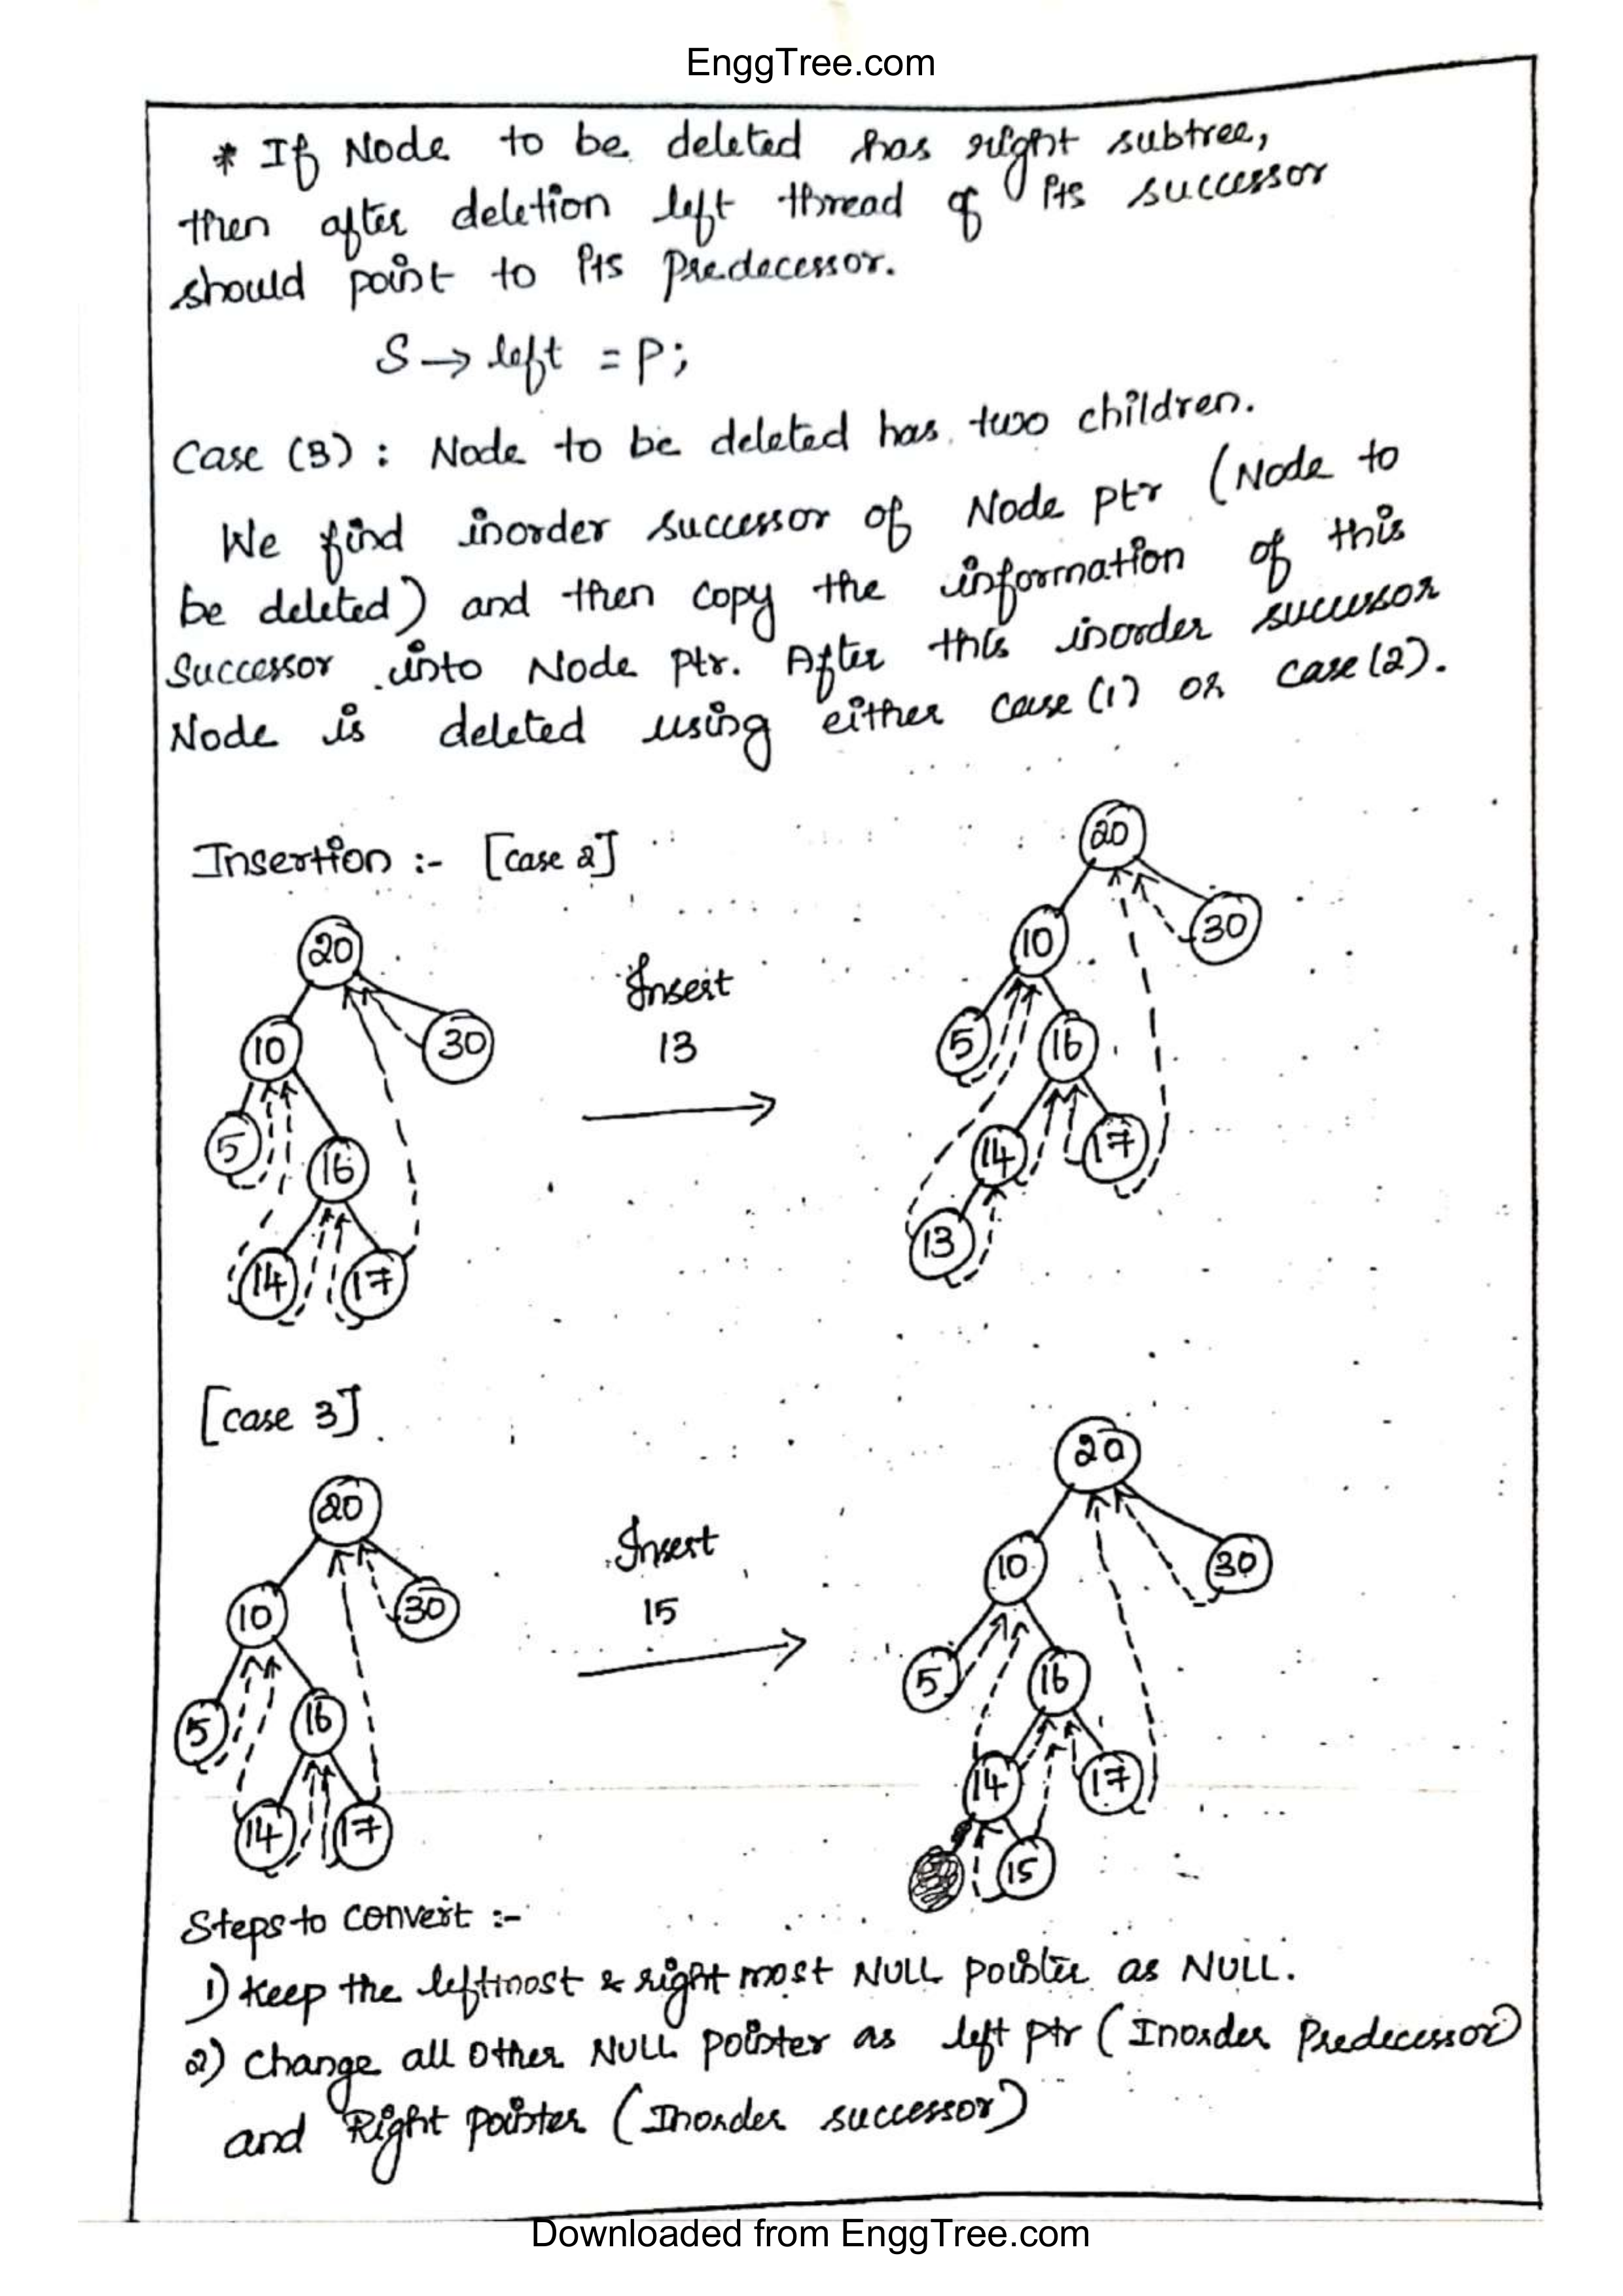 EnggTree.com
* If Node to be deleted has right subtree,
then after deletion left thread of its successor
should point to its predecessor.
S → left = P;
Case (3) : Node to be deleted has two children.
We find inorder successor of Node ptr (Node to
be deleted) and then copy the information of this
successor into Node ptr. After this inorder successor
Node is deleted using either case (1) or case (2).
Insertion :- [case 2]
20
10
30
5
16
14
17
Insert
13
20
10
30
5
16
14
17
13
[case 3]
20
10
30
5
16
14
17
Insert
15
20
10
30
5
16
14
17
15
Steps to convert :-
1) Keep the leftmost & right most NULL pointer as NULL.
2) change all other NULL pointer as left ptr (Inorder Predecessor)
and Right pointer (Inorder successor)
Downloaded from EnggTree.com